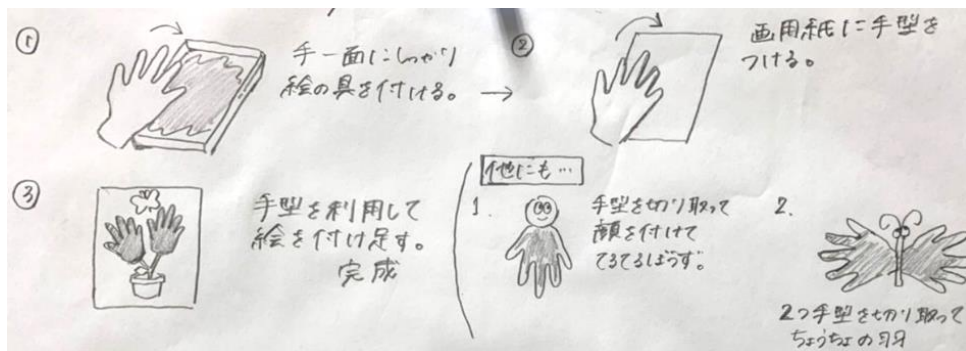 ①
手一面にしっかり
絵の具を付ける。
→
②
画用紙に手型を
つける。
③
手型を利用して
絵を付け足す。
完成
他にも…
1.
手型を切り取って
顔を付けて
てるてるぼうず。
2.
2つ手型を切り取って
ちょうちょの羽